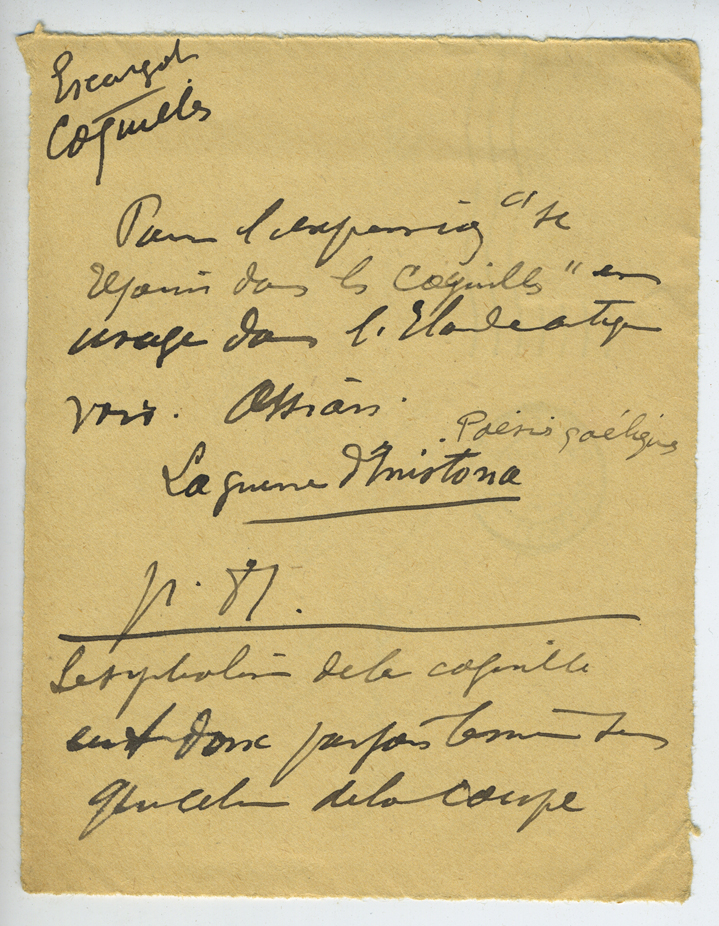 Escargots
Coquilles
Pour l'expression "se
réjouir dans les coquilles" en
usage dans l'Irlande antique
voir. Ossian.
Poésies gaéliques
La guerre d'Inistona
p. 81.
Le symbolisme de la coquille
est donc parfois le même
que celui de la coupe